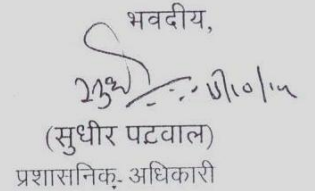 भवदीय,
(सुधीर पटवाल)
प्रशासनिक- अधिकारी